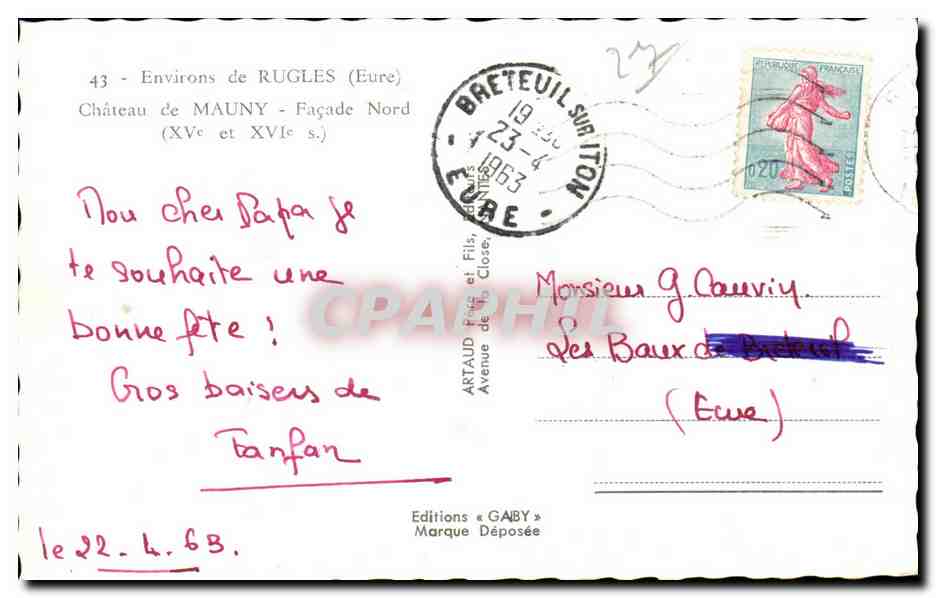 43 - Environs de RUGLES (Eure)
Château de MAUNY - Façade Nord
(XVe et XVIe s.)
Mon cher Papa je
te souhaite une
bonne fête !
Gros baisers de
Fanfan
le 22-4-63.
27
BRETEUIL SUR ITON
19
23-4
1963
- EURE -
REPUBLIQUE FRANÇAISE
0,20
POSTES
ARTAUD Père et Fils, Editeurs
Avenue de la Close, NANTES
Monsieur G. Cauvin.
Les Baux de Breteuil
(Eure)
Editions « GABY »
Marque Déposée
CPAPHIL